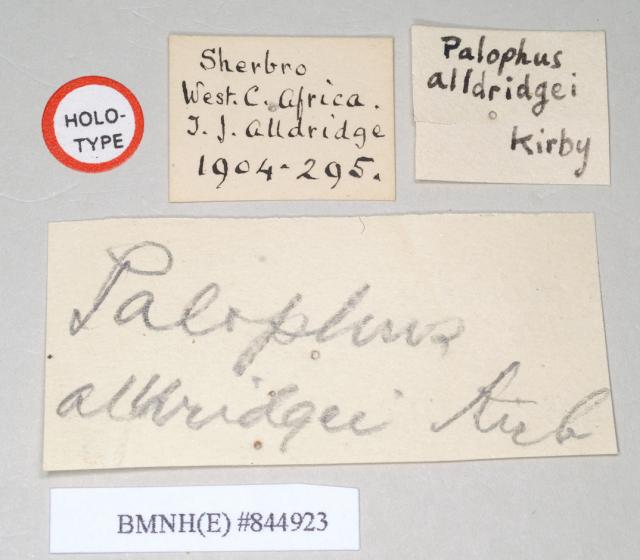 HOLO-
TYPE
Sherbro
West. C. Africa.
T. J. Alldridge
1904-295.
Palophus
alldridgei
Kirby
Palophus
alldridgei Kirb
BMNH(E) #844923